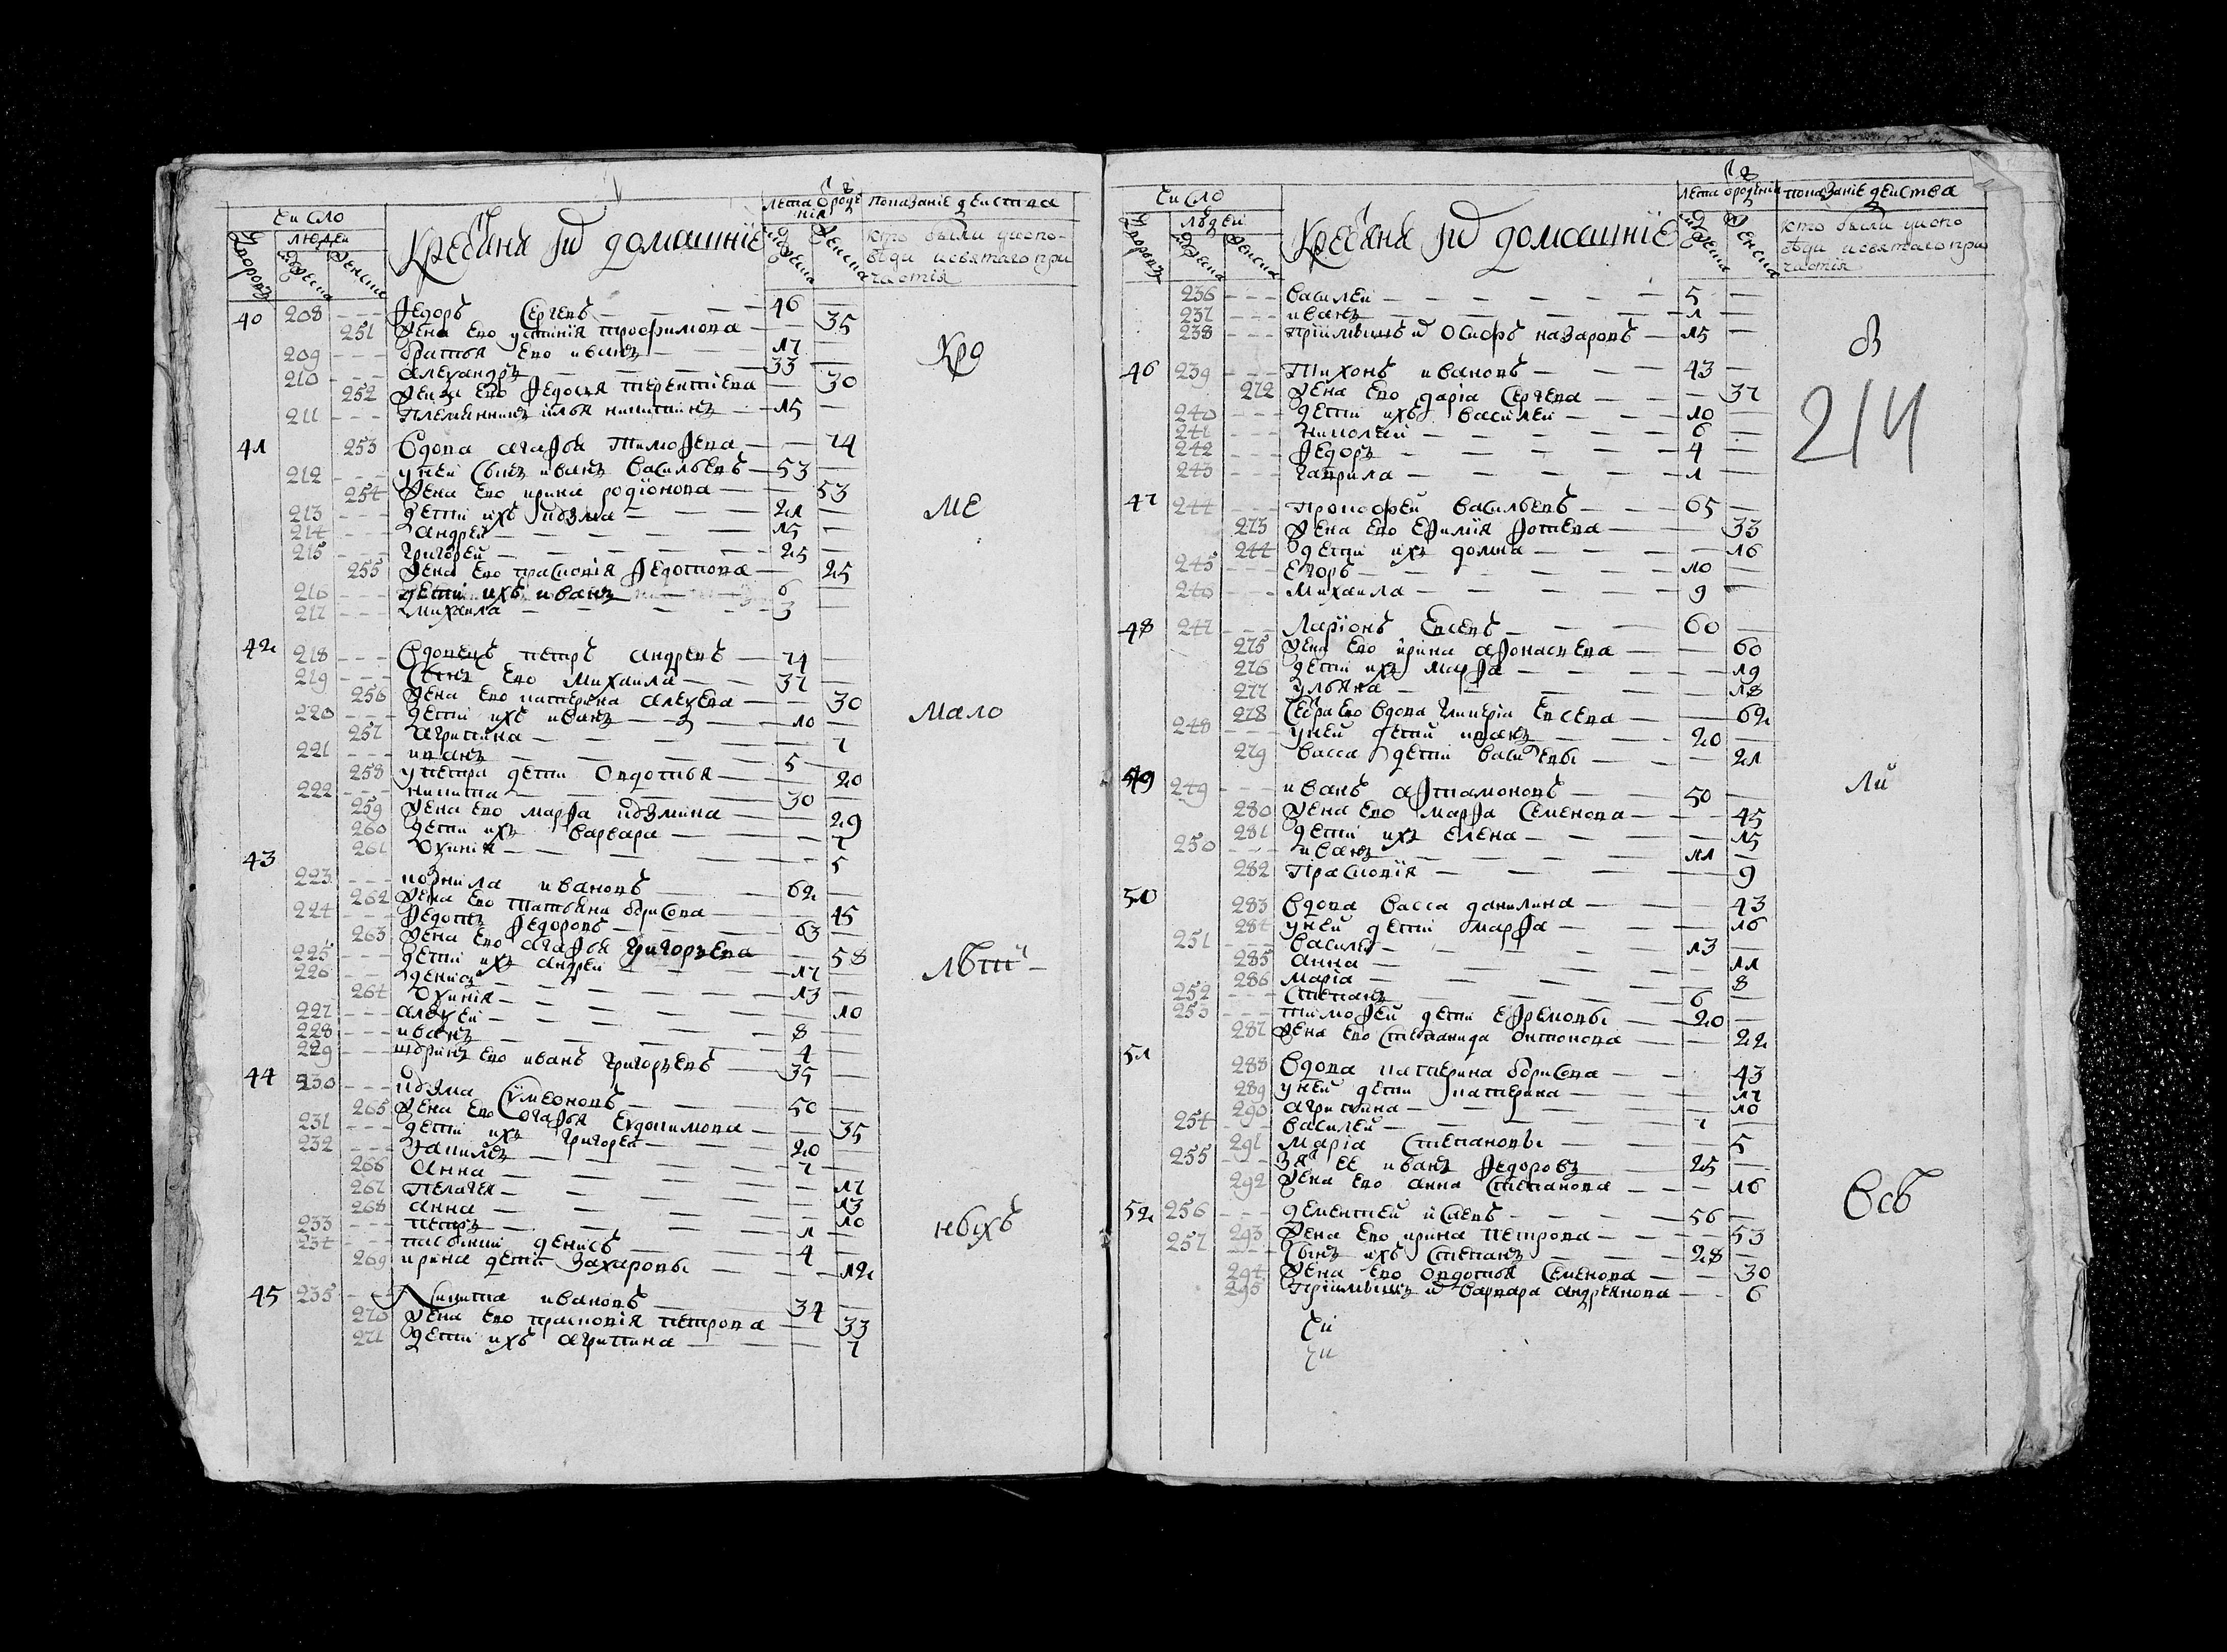 Число
Лѣта ѿ рожде
нія
Показаніе действа
людей
Дворовъ
мужеска
женска
Крестьяня и домашніе
мужеска
женска
кто были у испо-
веди и святаго при
частія
40 208 --- Ѳедоръ Сергеевъ — 46 —
251 Жена ево устинія трофимова — 35
209 --- братья ево иванъ — 17 —
210 --- александръ — 33 —
252 Жена ево Ѳедосья терентіева — 30
211 --- Племянникъ илья никитинъ — 15 —
41 253 Вдова агаѳья тимоѳева — 74
212 --- у ней сынъ иванъ васильевъ — 53 —
254 Жена ево ирина родіонова — 53
213 --- дети ихъ кузма — 21
214 --- андрей — 15 —
215 --- григорей — 25 —
255 Жена ево прасковія Ѳедотова — 25
216 --- дети ихъ иванъ — 6
217 --- михаила — 3 —
42 218 --- Вдовецъ петръ андреевъ — 74 —
219 --- Сынъ ево михаила — 37 —
256 Жена ево катерина алексеева — 30
220 --- дети ихъ иванъ — 10 —
257 агрипина — 7
221 --- иванъ — 5 —
258 у петра дети овдотья — 20
222 --- никита — 30 —
259 Жена ево марѳа кузмина — 29
260 дети ихъ варвара — 7
261 — 5
43 223 --- корнила ивановъ — 62 —
262 Жена ево татьяна борисова — 45
224 --- Ѳедотъ Ѳедоровъ — 63 —
263 Жена ево агаѳья григорьева — 58
225 --- дети ихъ андрей — 17 —
226 --- денисъ — 13 —
264 — 10
227 --- алексей — 8 —
228 --- иванъ — 4 —
229 --- шуринъ ево иванъ григорьевъ — 35 —
44 230 --- кузма сумеоновъ — 50 —
265 Жена ево агаѳья евдокимова — 35
231 --- дети ихъ григорей — 20 —
232 --- — 7 —
266 анна — 17
267 пелагея — 13
268 анна — 10
233 --- петръ — 1 —
234 --- денисъ — 4 —
269 ирина дети захаровы — 12
45 235 --- Никита ивановъ — 34 —
270 Жена ево прасковія петрова — 33
271 дети ихъ агрипина — 7
Хр
МЕ
мало
лѣт-
ныхъ
Число
Лѣта ѿ рожденія
показаніе действа
людей
Дворовъ
мужеска
женска
Крестьяня и домашніе
мужеска
женска
кто были у испо
веди и святаго при
частія
236 --- василей — 5 —
237 --- иванъ — 1 —
238 --- осифъ назаровъ — 15 —
46 239 --- Тихонъ ивановъ — 43 —
272 Жена ево даріа сергеева — 37
240 --- дети ихъ василей — 10 —
241 --- николай — 6 —
242 --- Ѳедоръ — 4 —
243 --- гаврила — 1 —
47 244 --- прокофей васильевъ — 65 —
273 Жена ево еѳимія Ѳотеева — 33
244 дети ихъ домна — 16
245 --- егоръ — 10 —
246 --- михаила — 9 —
48 247 --- Ларіонъ евсеевъ — 60 —
275 Жена ево ирина аѳонасиева — 60
276 дети ихъ марѳа — 19
277 ульяна — 18
278 сестра ево вдова гликеріа евсеева — 62
248 --- у ней дети иванъ — 20 —
279 васса дети васильевы — 21
49 249 --- иванъ аѳтамоновъ — 50 —
280 Жена ево марѳа семенова — 45
281 дети ихъ елена — 15
250 --- иванъ — 11 —
282 прасковія — 9
50 283 вдова васса данилина — 43
284 у ней дети марѳа — 16
251 --- василей — 13 —
285 анна — 11
286 маріа — 8
252 --- степанъ — 6 —
253 --- тимоѳей дети еѳремовы — 20 —
287 Жена ево степанида онтонова — 22
51 288 вдова катерина борисова — 43
289 у ней дети катерина — 17
290 агрипина — 10
254 --- василей — 7 —
291 маріа степановы — 5
255 --- зя ее иванъ Ѳедоровъ — 25 —
292 Жена ево анна степанова — 16
52 256 --- дементей исаевъ — 56 —
293 Жена ево ирина петрова — 53
257 --- сынъ ихъ степанъ — 28 —
294 Жена ево овдотья семенова — 30
295 варвара андреянова — 6
Чи
чи
214
ли
всѣ